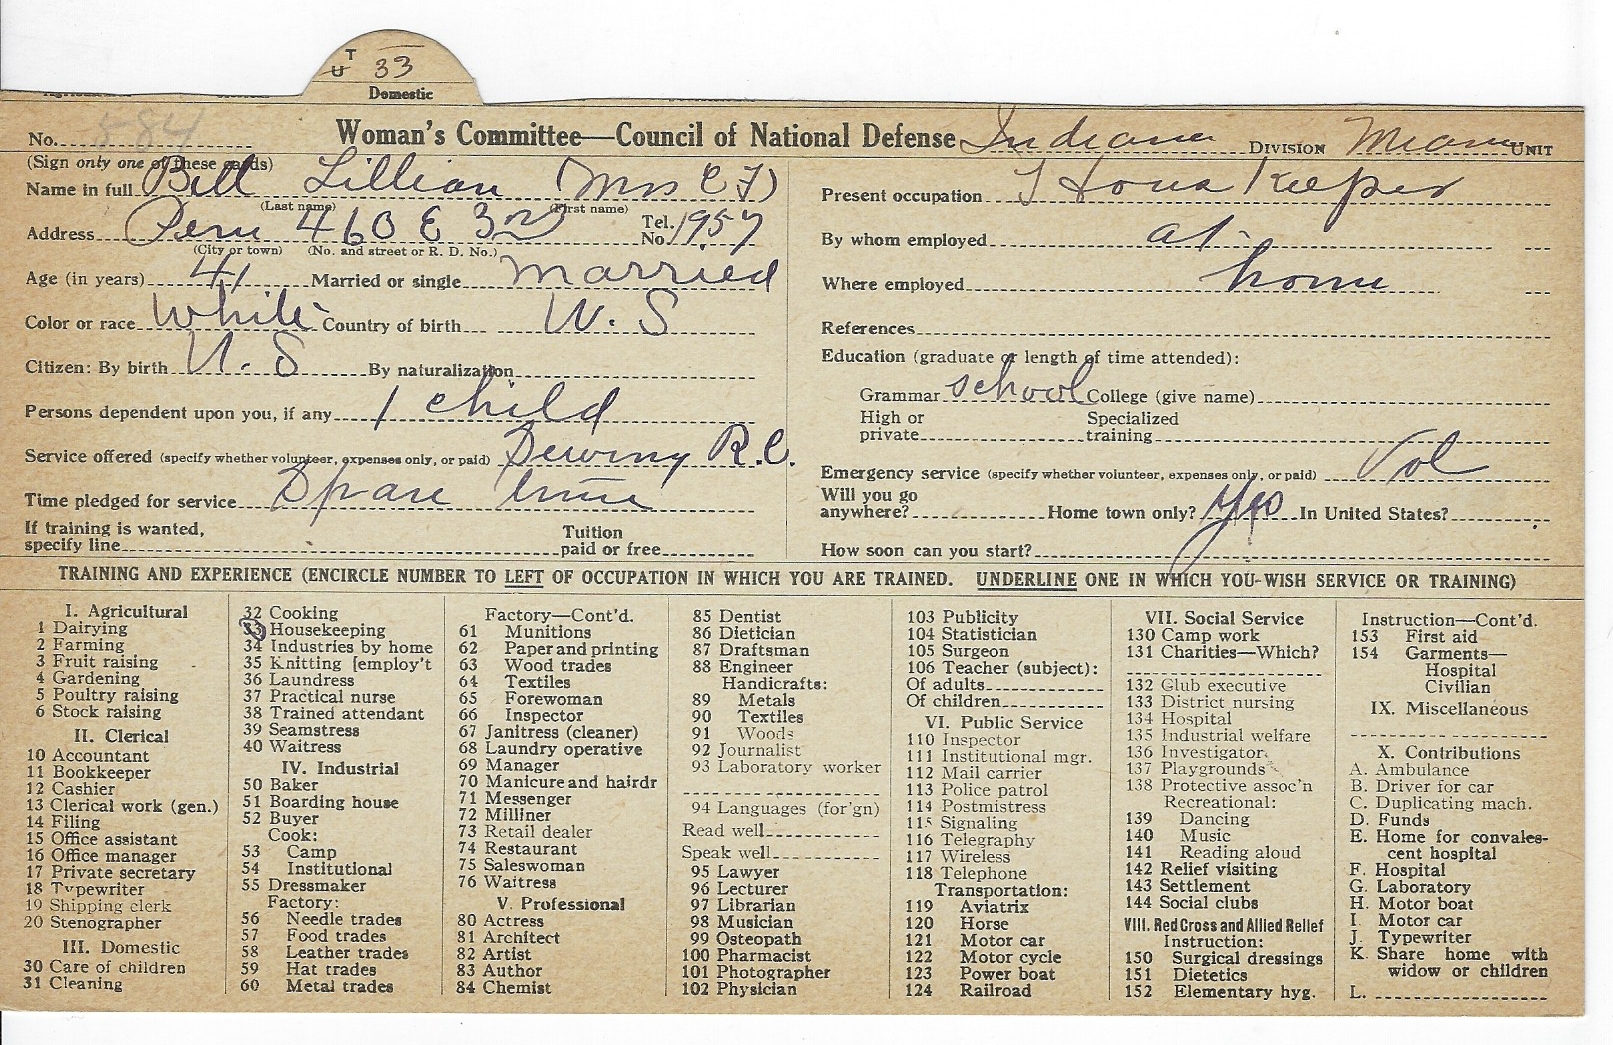 T
U 33
Domestic
No. 584
Woman's Committee—Council of National Defense Indiana DIVISION Miami UNIT
(Sign only one of these cards)
Name in full Bell Lillian (Mrs C F)
(Last name) (First name)
Address Peru 460 E 3rd Tel. No. 1957
(City or town) (No. and street or R. D. No.)
Age (in years) 41 Married or single married
Color or race White Country of birth U. S
Citizen: By birth U. S By naturalization
Persons dependent upon you, if any 1 child
Service offered (specify whether volunteer, expenses only, or paid) Sewing R.C.
Time pledged for service Spare time
If training is wanted,
specify line Tuition paid or free
Present occupation House Keeper
By whom employed at
Where employed home
References
Education (graduate or length of time attended):
Grammar school College (give name)
High or private Specialized training
Emergency service (specify whether volunteer, expenses only, or paid) Vol
Will you go anywhere? Home town only? Yes In United States?
How soon can you start?
TRAINING AND EXPERIENCE (ENCIRCLE NUMBER TO LEFT OF OCCUPATION IN WHICH YOU ARE TRAINED. UNDERLINE ONE IN WHICH YOU WISH SERVICE OR TRAINING)
I. Agricultural
1 Dairying
2 Farming
3 Fruit raising
4 Gardening
5 Poultry raising
6 Stock raising
II. Clerical
10 Accountant
11 Bookkeeper
12 Cashier
13 Clerical work (gen.)
14 Filing
15 Office assistant
16 Office manager
17 Private secretary
18 Typewriter
19 Shipping clerk
20 Stenographer
III. Domestic
30 Care of children
31 Cleaning
32 Cooking
33 Housekeeping
34 Industries by home
35 Knitting [employ't
36 Laundress
37 Practical nurse
38 Trained attendant
39 Seamstress
40 Waitress
IV. Industrial
50 Baker
51 Boarding house
52 Buyer
Cook:
53 Camp
54 Institutional
55 Dressmaker
Factory:
56 Needle trades
57 Food trades
58 Leather trades
59 Hat trades
60 Metal trades
Factory—Cont'd.
61 Munitions
62 Paper and printing
63 Wood trades
64 Textiles
65 Forewoman
66 Inspector
67 Janitress (cleaner)
68 Laundry operative
69 Manager
70 Manicure and hairdr
71 Messenger
72 Milliner
73 Retail dealer
74 Restaurant
75 Saleswoman
76 Waitress
V. Professional
80 Actress
81 Architect
82 Artist
83 Author
84 Chemist
85 Dentist
86 Dietician
87 Draftsman
88 Engineer
Handicrafts:
89 Metals
90 Textiles
91 Woods
92 Journalist
93 Laboratory worker
94 Languages (for'gn)
Read well
Speak well
95 Lawyer
96 Lecturer
97 Librarian
98 Musician
99 Osteopath
100 Pharmacist
101 Photographer
102 Physician
103 Publicity
104 Statistician
105 Surgeon
106 Teacher (subject):
Of adults
Of children
VI. Public Service
110 Inspector
111 Institutional mgr.
112 Mail carrier
113 Police patrol
114 Postmistress
115 Signaling
116 Telegraphy
117 Wireless
118 Telephone
Transportation:
119 Aviatrix
120 Horse
121 Motor car
122 Motor cycle
123 Power boat
124 Railroad
VII. Social Service
130 Camp work
131 Charities—Which?
132 Club executive
133 District nursing
134 Hospital
135 Industrial welfare
136 Investigator
137 Playgrounds
138 Protective assoc'n
Recreational:
139 Dancing
140 Music
141 Reading aloud
142 Relief visiting
143 Settlement
144 Social clubs
VIII. Red Cross and Allied Relief
Instruction:
150 Surgical dressings
151 Dietetics
152 Elementary hyg.
Instruction—Cont'd.
153 First aid
154 Garments—
Hospital
Civilian
IX. Miscellaneous
X. Contributions
A. Ambulance
B. Driver for car
C. Duplicating mach.
D. Funds
E. Home for convales-
cent hospital
F. Hospital
G. Laboratory
H. Motor boat
I. Motor car
J. Typewriter
K. Share home with
widow or children
L.